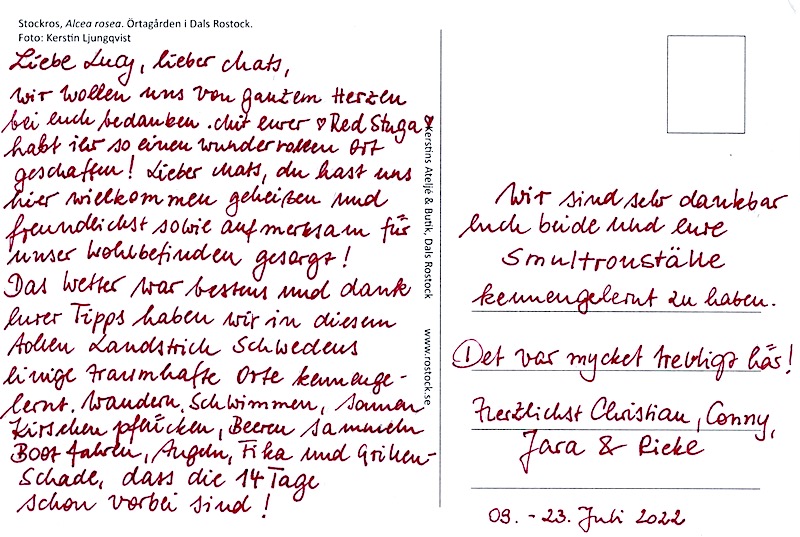 Stockros, Alcea rosea. Örtagården i Dals Rostock.
Foto: Kerstin Ljungqvist
Liebe Lucy, lieber Mats,
wir wollen uns von ganzem Herzen
bei euch bedanken. Mit eurer ♡ Red Stuga ♡
habt ihr so einen wundervollen Ort
geschaffen! Lieber Mats, du hast uns
hier willkommen geheißen und
freundlichst sowie aufmerksam für
unser Wohlbefinden gesorgt!
Das Wetter war bestens und dank
eurer Tipps haben wir in diesem
tollen Landstrich Schwedens
einige traumhafte Orte kennenge-
lernt. Wandern, Schwimmen, Sonnen
Kirschen pflücken, Beeren sammeln
Boot fahren, Angeln, Fika und Grillen-
Schade, dass die 14 Tage
schon vorbei sind!
Kerstins Ateljé & Butik, Dals Rostock www.rostock.se
Wir sind sehr dankbar
euch beide und eure
Smultronställe
kennengelernt zu haben.
Det var mycket trevligt här!
Herzlichst Christian, Conny,
Jara & Rieke
09. - 23. Juli 2022